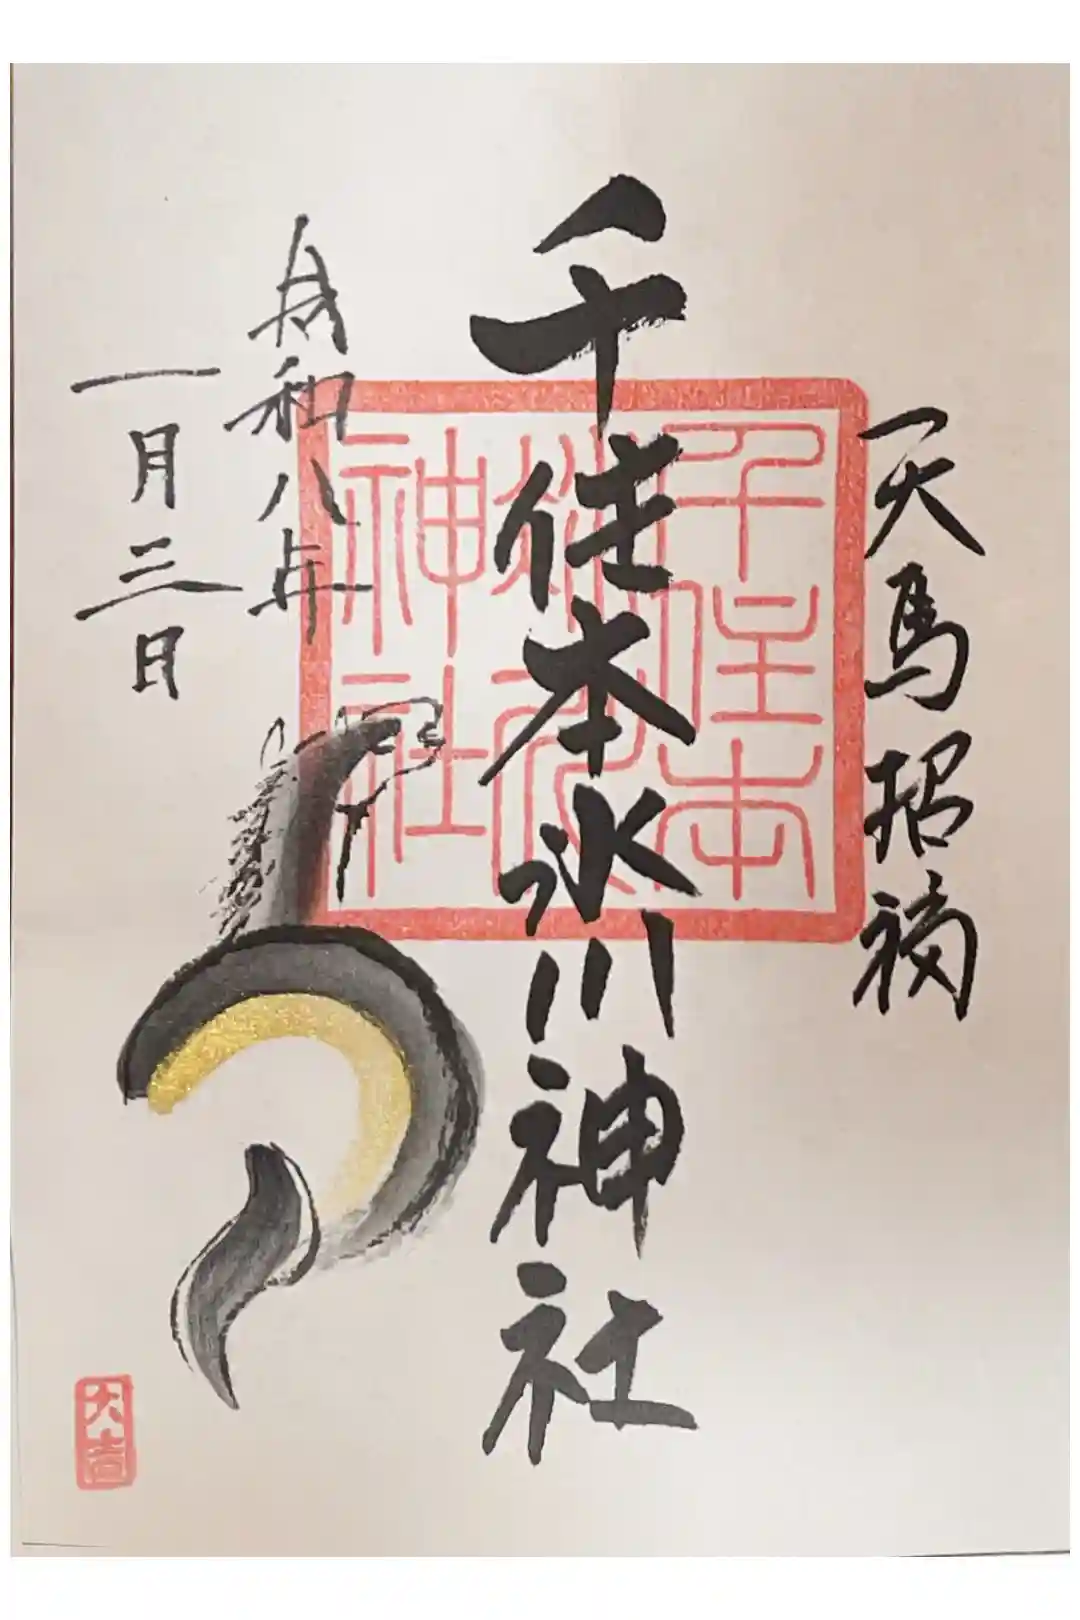 天馬招福
千住本氷川神社
千住本
氷川
神社
令和八年
一月三日
大吉